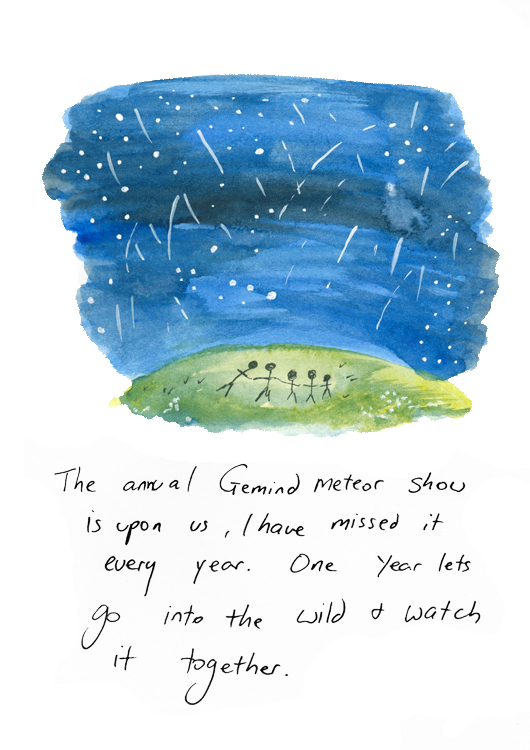 The annual Gemind meteor show
is upon us, I have missed it
every year. One Year lets
go into the wild & watch
it together.